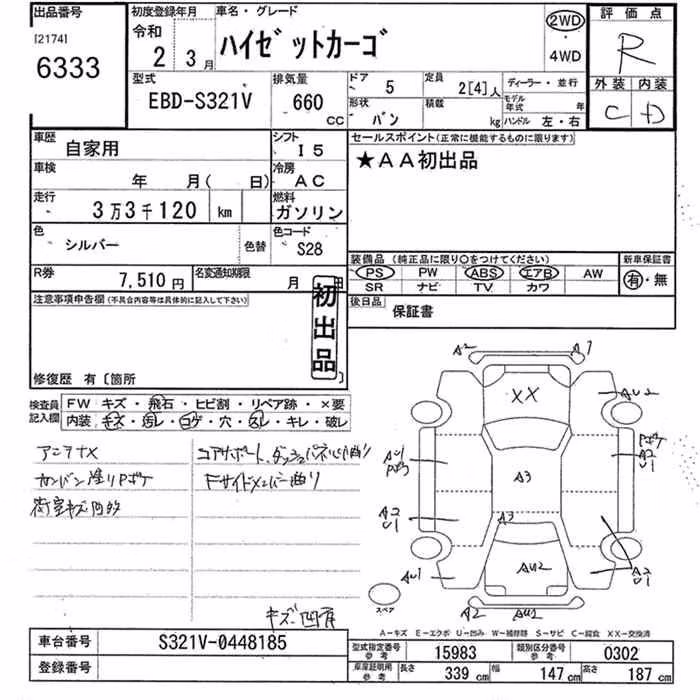 出品番号
[2174]
6333
初度登録年月
令和
2 3月
車名・グレード
ハイゼットカーゴ
2WD
・
4WD
評価点
R
外装 内装
C D
型式
EBD-S321V
排気量
660 CC
ドア 5
形状 バン
定員 2[4]人
積載 kg
ディーラー・並行
モデル年式 年
ハンドル 左・右
車歴 自家用
シフト I5
車検 年 月( 日)
冷房 AC
走行 3万3千120 km
燃料 ガソリン
色 シルバー 色替
色コード S28
R券 7,510円
名変通知期限 月 日
セールスポイント(正常に機能するものに限ります)
★AA初出品
装備品(純正品に限り○をつけてください)
PS PW ABS エアB AW
SR ナビ TV カワ
新車保証書
有・無
後日品 保証書
注意事項申告欄(不具合内容等は具体的に記入して下さい)
初出品
修復歴 有〔箇所
検査員記入欄
FW キズ・飛石・ヒビ割・リペア跡・×要
内装・キズ・汚レ・コゲ・穴・スレ・キレ・破レ
アンテナX
コアサポート、ダッシュパネル曲り
カンバン塗りハゲ
Fサイドメンバー曲り
キズ凹有
A2 A1
XX
AU2
AU1
A2
U1
A3
A3
A2
U1
AU1
AU2
A2
U1
A2 AU2
スペア
A−キズ E−エクボ U−凹み W−補修跡 S−サビ C−腐食 XX−交換済
車台番号 S321V-0448185
登録番号
型式指定番号 参考 15983
類別区分番号 参考 0302
車庫証明用 参考 長さ 339cm 幅 147cm 高さ 187cm